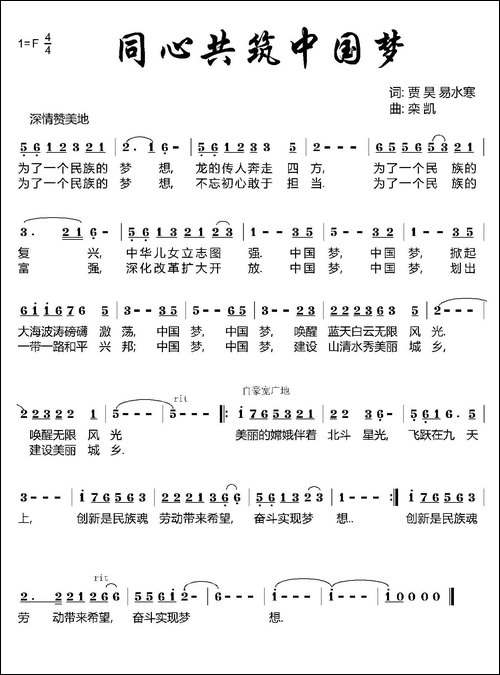 1=F 4/4
同心共筑中国梦
词: 贾 昊 易水寒
曲: 栾 凯
深情赞美地
5 6 1 2 3 2 1 | 2. 1 6 - | 5 6 1 2 3 3 5 | 2 - - - | 5 5 6 3 2 3 5
为了一个民族的 梦 想, 龙的传人奔走 四 方, 为了一个民 族的
为了一个民族的 梦 想, 不忘初心敢于 担 当. 为了一个民 族的
3. 2 1 6 - | 5 6 1 3 2 3 2 | 1 - 3 5 | 2 - 3 5 | 1 - 3 5
复 兴, 中华儿女立志图 强. 中国 梦, 中国 梦, 掀起
富 强, 深化改革扩大开 放. 中国 梦, 中国 梦, 划出
6 i i 6 7 6 5 | 3 - 3 5 | 2 - 3 5 | 1 - 3 5 | 6 i 6 5 1 2 3 4 | 2 - - -
大海波涛磅礴 激 荡, 中国 梦, 中国 梦, 唤醒 蓝天白云无限 风 光.
一带一路和平 兴 邦; 中国 梦, 中国 梦, 建设 山清水秀美丽 城 乡,
rit 自豪宽广地
2 2 3 2 2 1 | 5 - - - | 5 - - - |: i 7 6 5 3 2 1 | 2 2 3 6 - | 5 6 1 6 . 5
唤醒无限 风 光 美丽的嫦娥伴着 北斗 星光, 飞跃在九 天
建设美丽 城 乡.
3 - - - | i 7 6 5 6 3 | 2 2 1 2 3 6 6 | 5 6 1 3 2 3 | 1 - - - :| i 7 6 5 6 3
上, 创新是民族魂 劳动带来希望, 奋斗实现梦 想.. 创新是民族魂
rit
2 . 2 2 1 2 6 6 | 5 5 6 i 2 - | 6 - - - | i - - - | i - - - | i 0 0 0 0 ‖
劳 动带来希望, 奋斗实现梦 想.